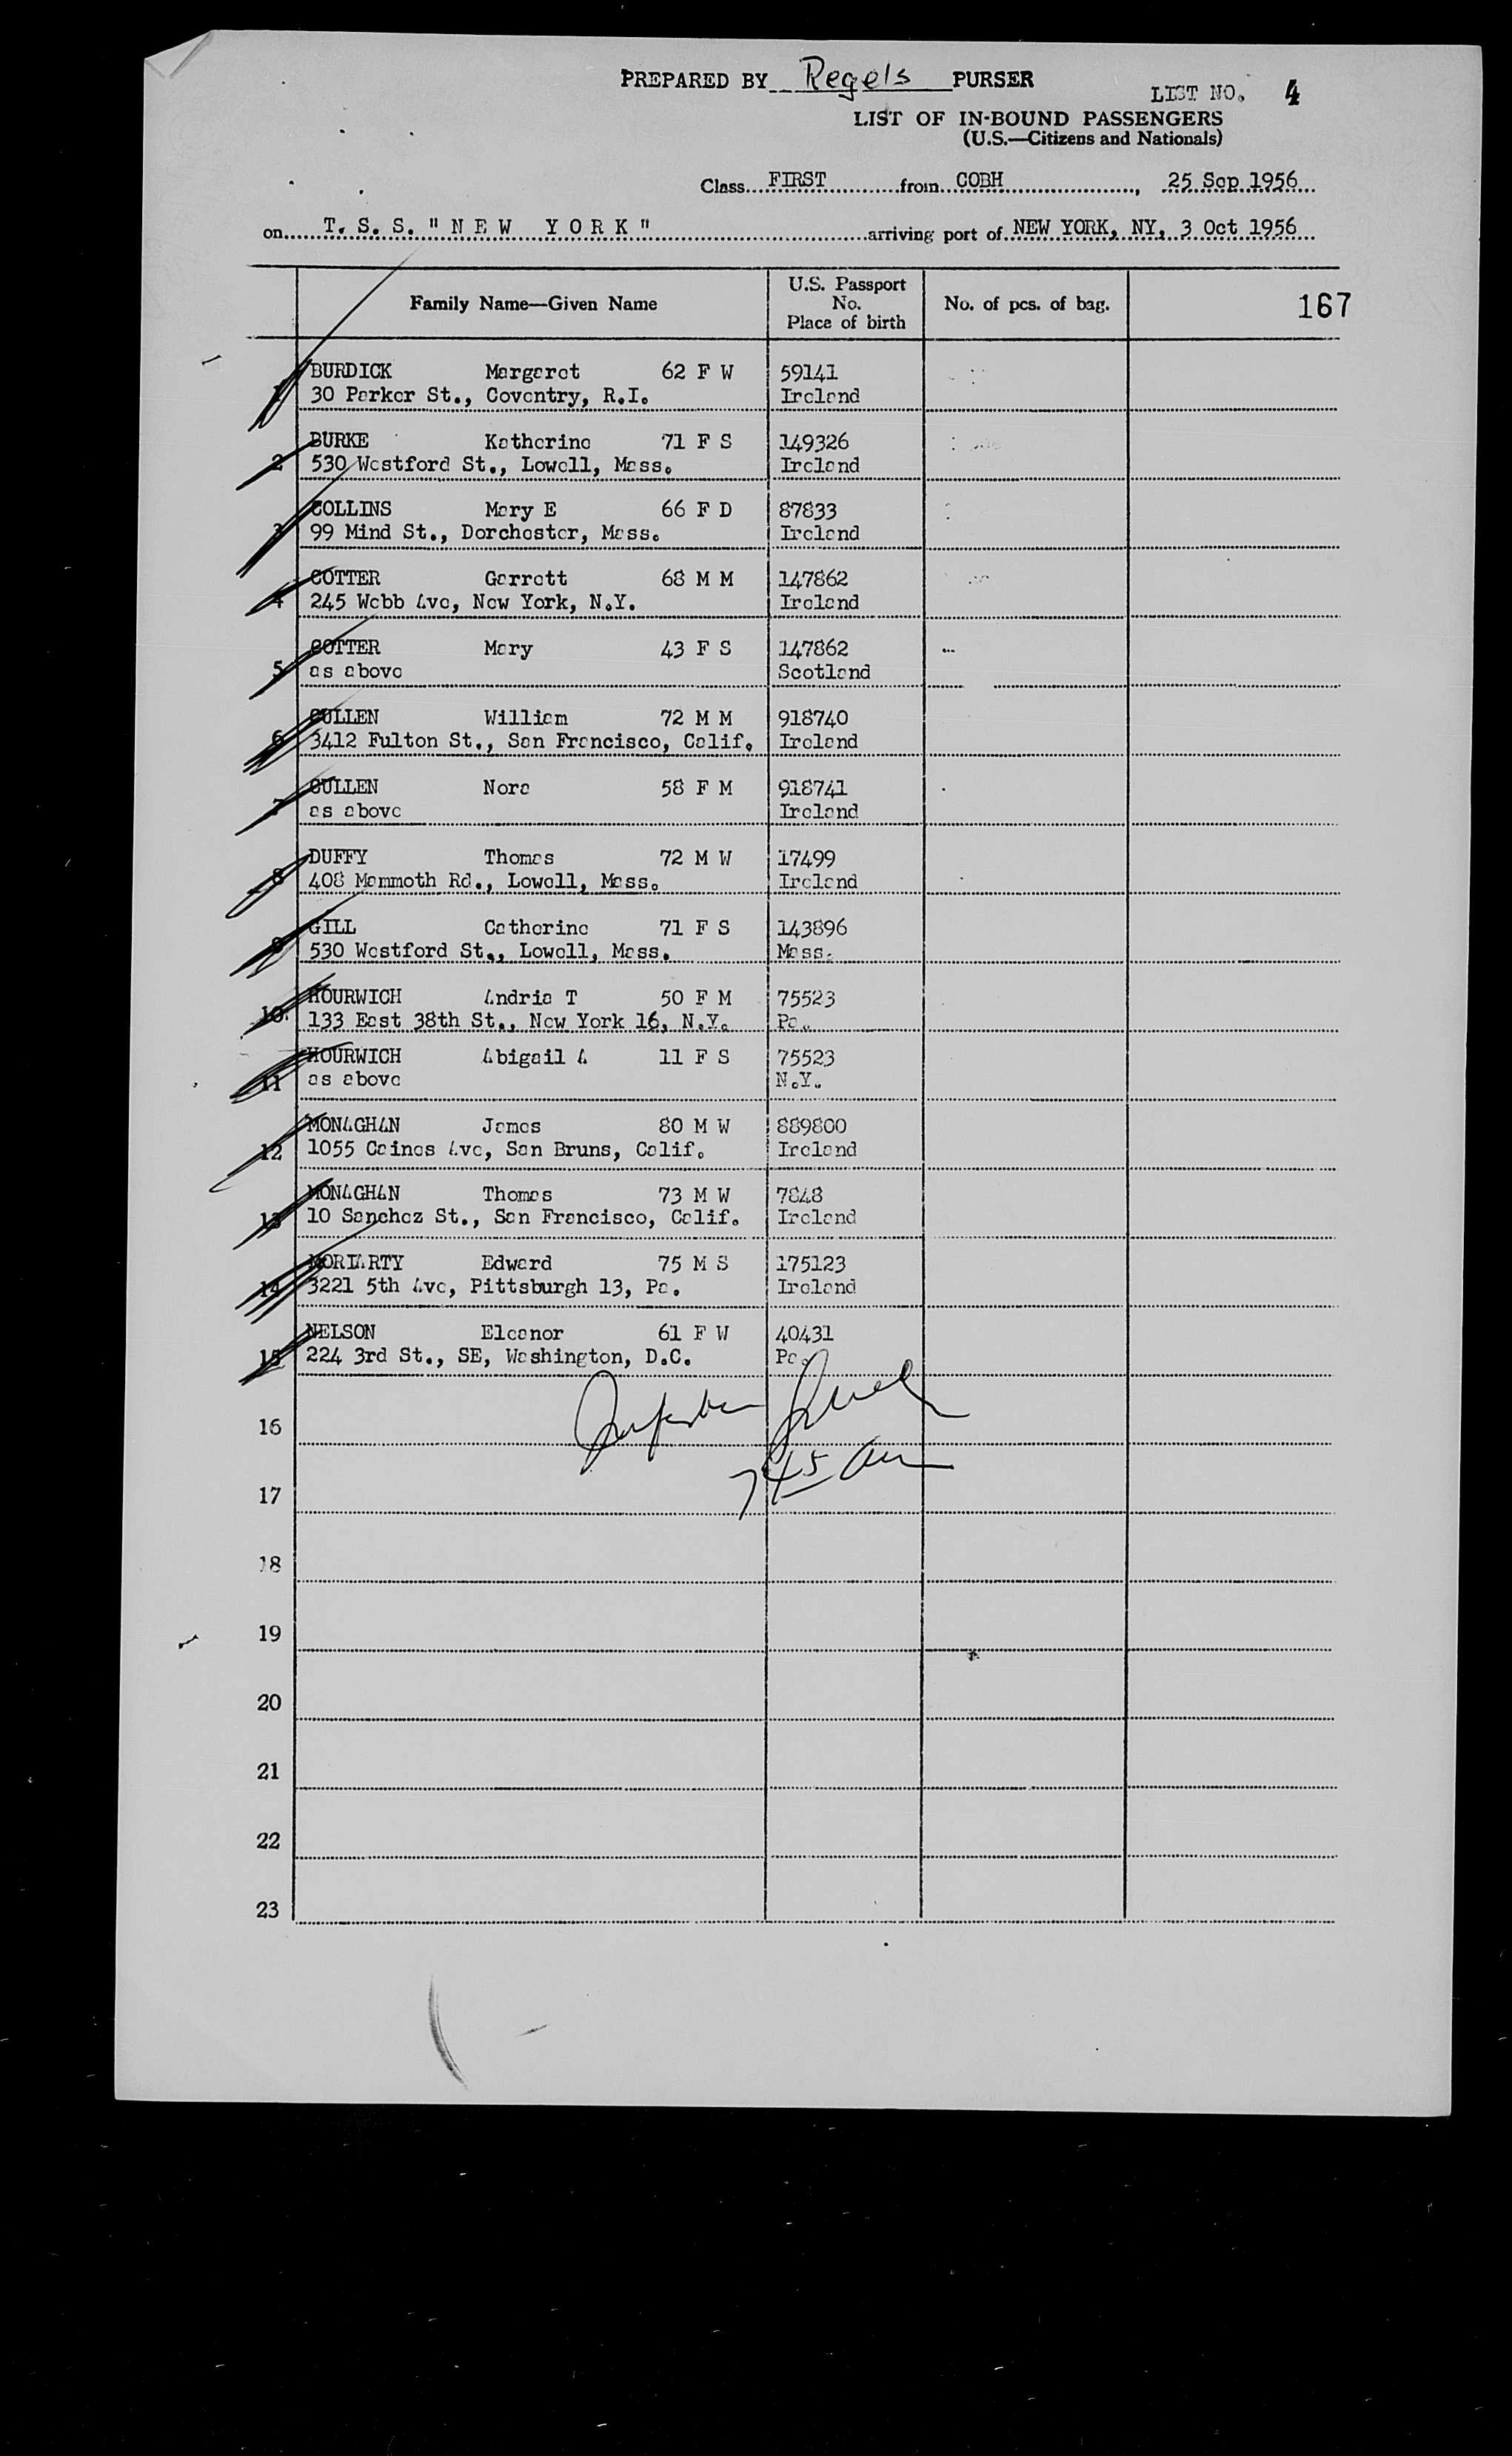 PREPARED BY Regels PURSER
LIST NO. 4
LIST OF IN-BOUND PASSENGERS
(U.S.—Citizens and Nationals)
Class FIRST from COBH, 25 Sep 1956
on T. S. S. "N E W Y O R K" arriving port of NEW YORK, NY, 3 Oct 1956
Family Name—Given Name U.S. Passport No. Place of birth No. of pcs. of bag. 167
1 BURDICK Margaret 62 F W 59141
30 Parker St., Coventry, R.I. Ireland
2 BURKE Katherine 71 F S 149326
530 Westford St., Lowell, Mass. Ireland
3 COLLINS Mary E 66 F D 87833
99 Mind St., Dorchester, Mass. Ireland
4 COTTER Garrett 68 M M 147862
245 Webb Ave, New York, N.Y. Ireland
5 COTTER Mary 43 F S 147862
as above Scotland
6 CULLEN William 72 M M 918740
3412 Fulton St., San Francisco, Calif. Ireland
7 CULLEN Nora 58 F M 918741
as above Ireland
8 DUFFY Thomas 72 M W 17499
408 Mammoth Rd., Lowell, Mass. Ireland
9 GILL Catherine 71 F S 143896
530 Westford St., Lowell, Mass. Mass.
10. HOURWICH Andria T 50 F M 75523
133 East 38th St., New York 16, N.Y. Pa.
11 HOURWICH Abigail A 11 F S 75523
as above N.Y.
12 MONAGHAN James 80 M W 889800
1055 Caines Ave, San Bruns, Calif. Ireland
13 MONAGHAN Thomas 73 M W 7848
10 Sanchez St., San Francisco, Calif. Ireland
14 MORIARTY Edward 75 M S 175123
3221 5th Ave, Pittsburgh 13, Pa. Ireland
15 NELSON Eleanor 61 F W 40431
224 3rd St., SE, Washington, D.C. Pa.
16
745 am
17
18
19
20
21
22
23